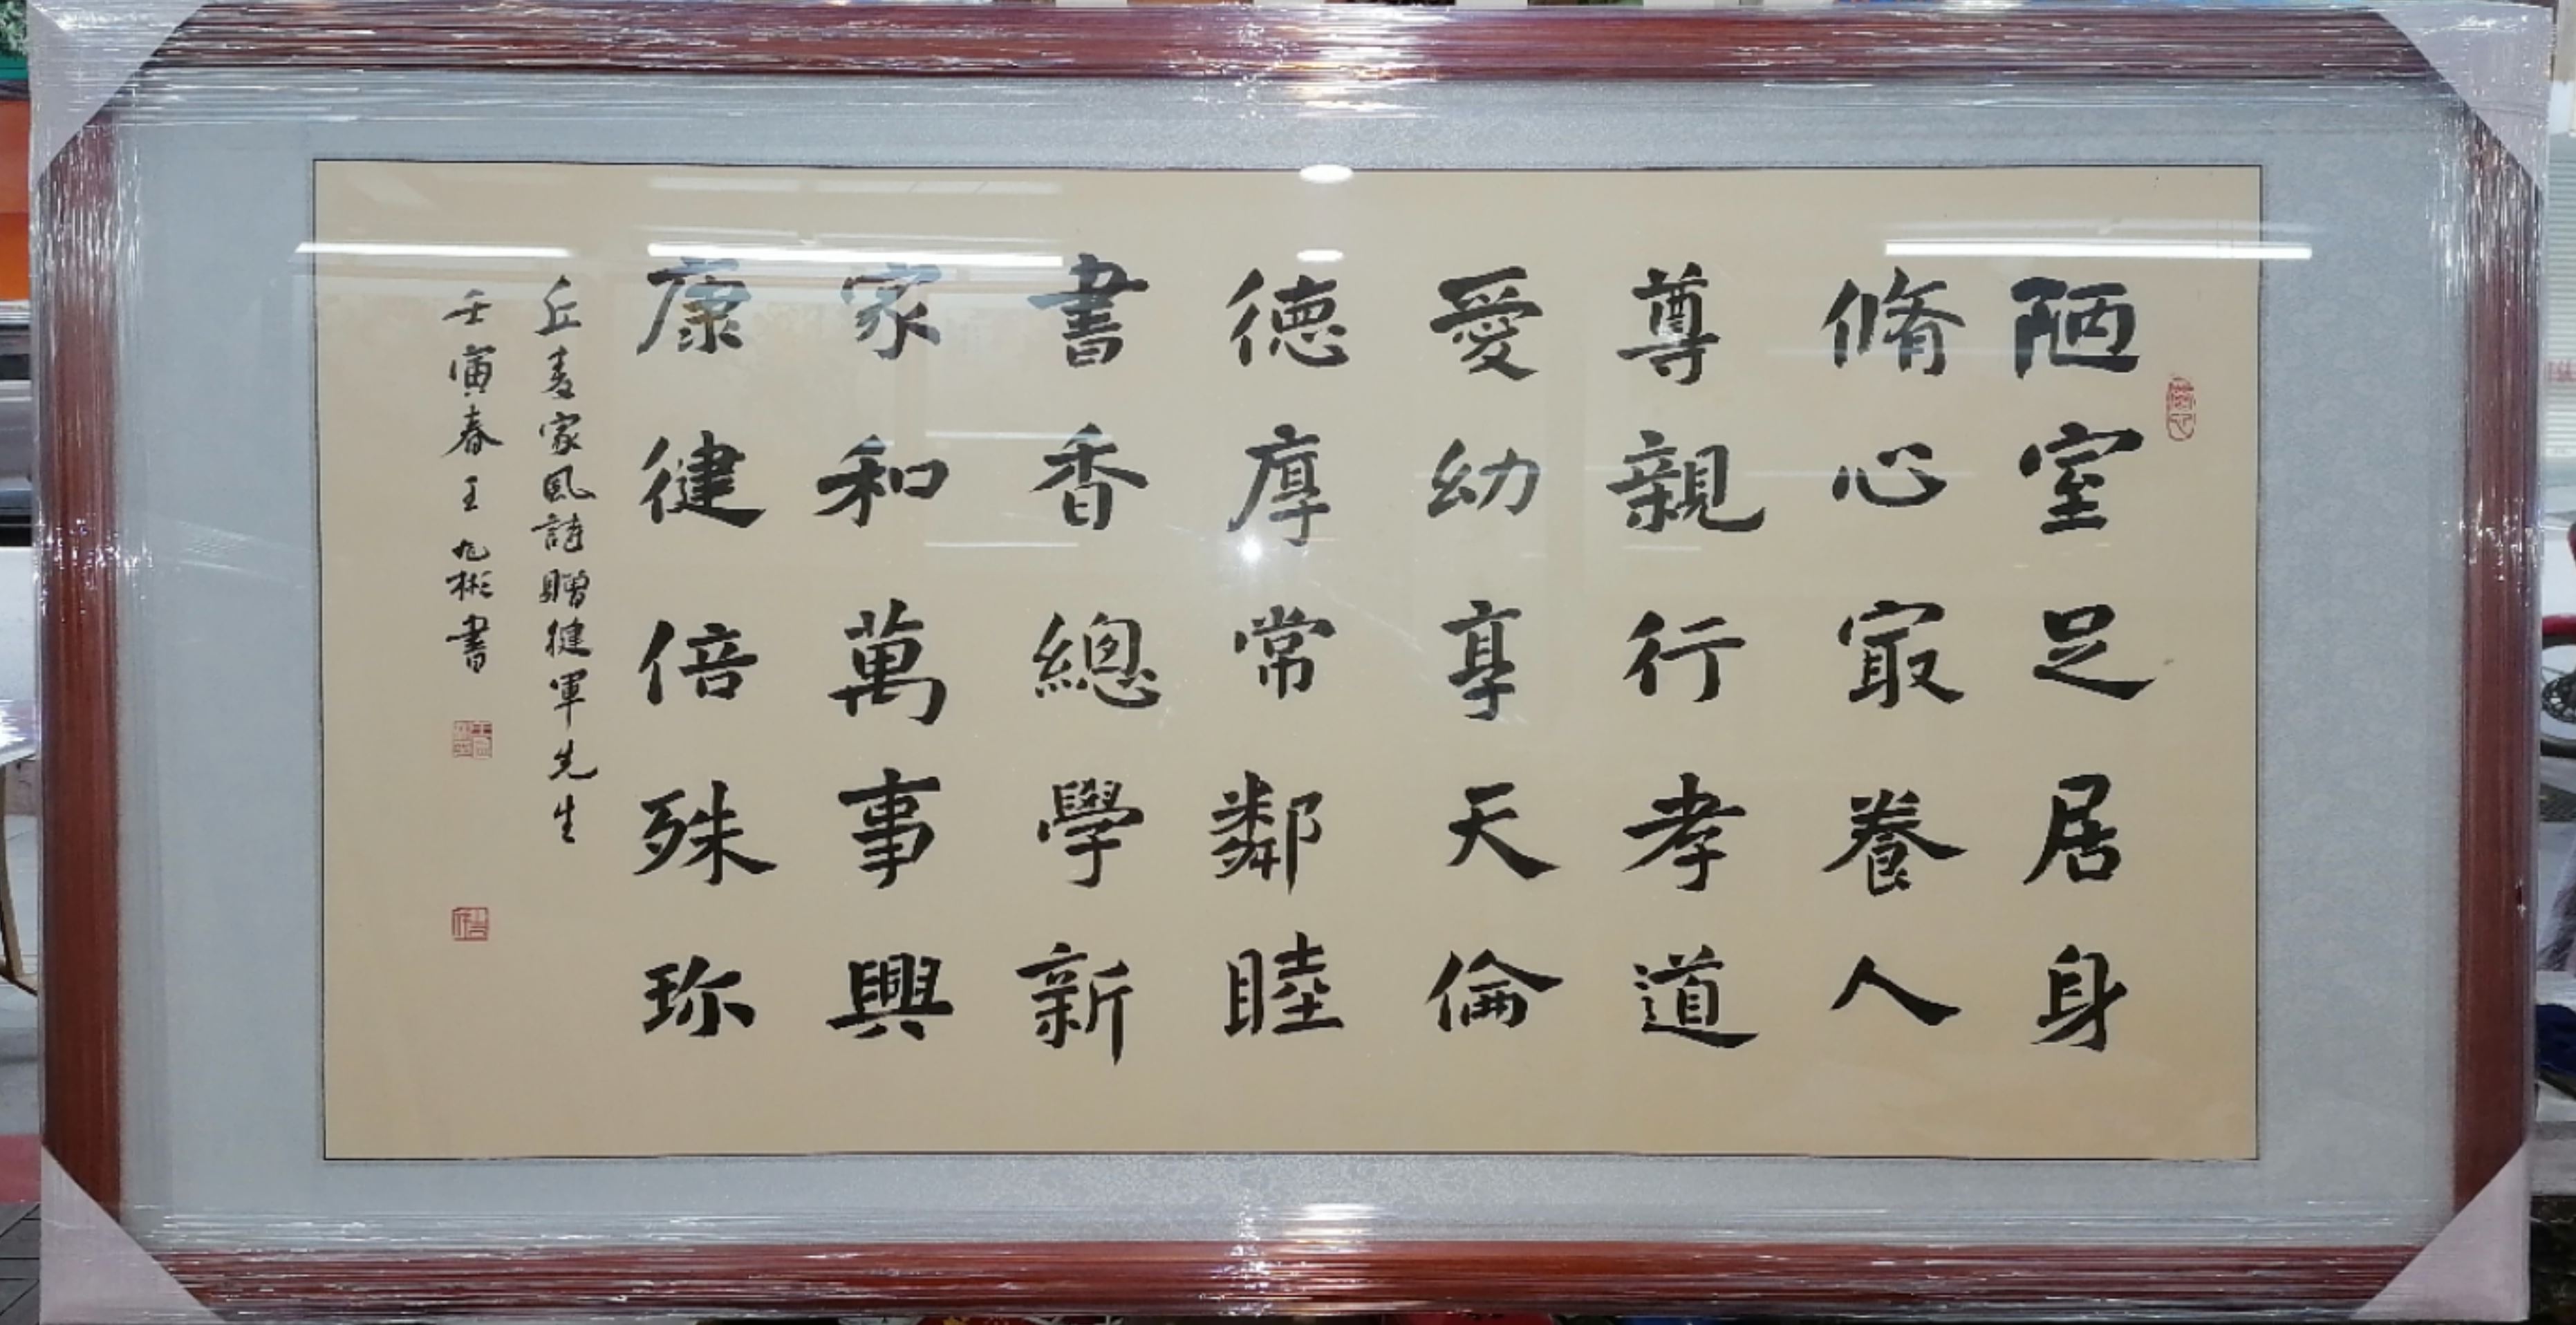 陋室足居身
脩心㝡養人
尊親行孝道
愛幼享天倫
德厚常鄰睦
書香總學新
家和萬事興
康健倍殊珎
丘 家風詩贈健軍先生
壬寅春王 彬書